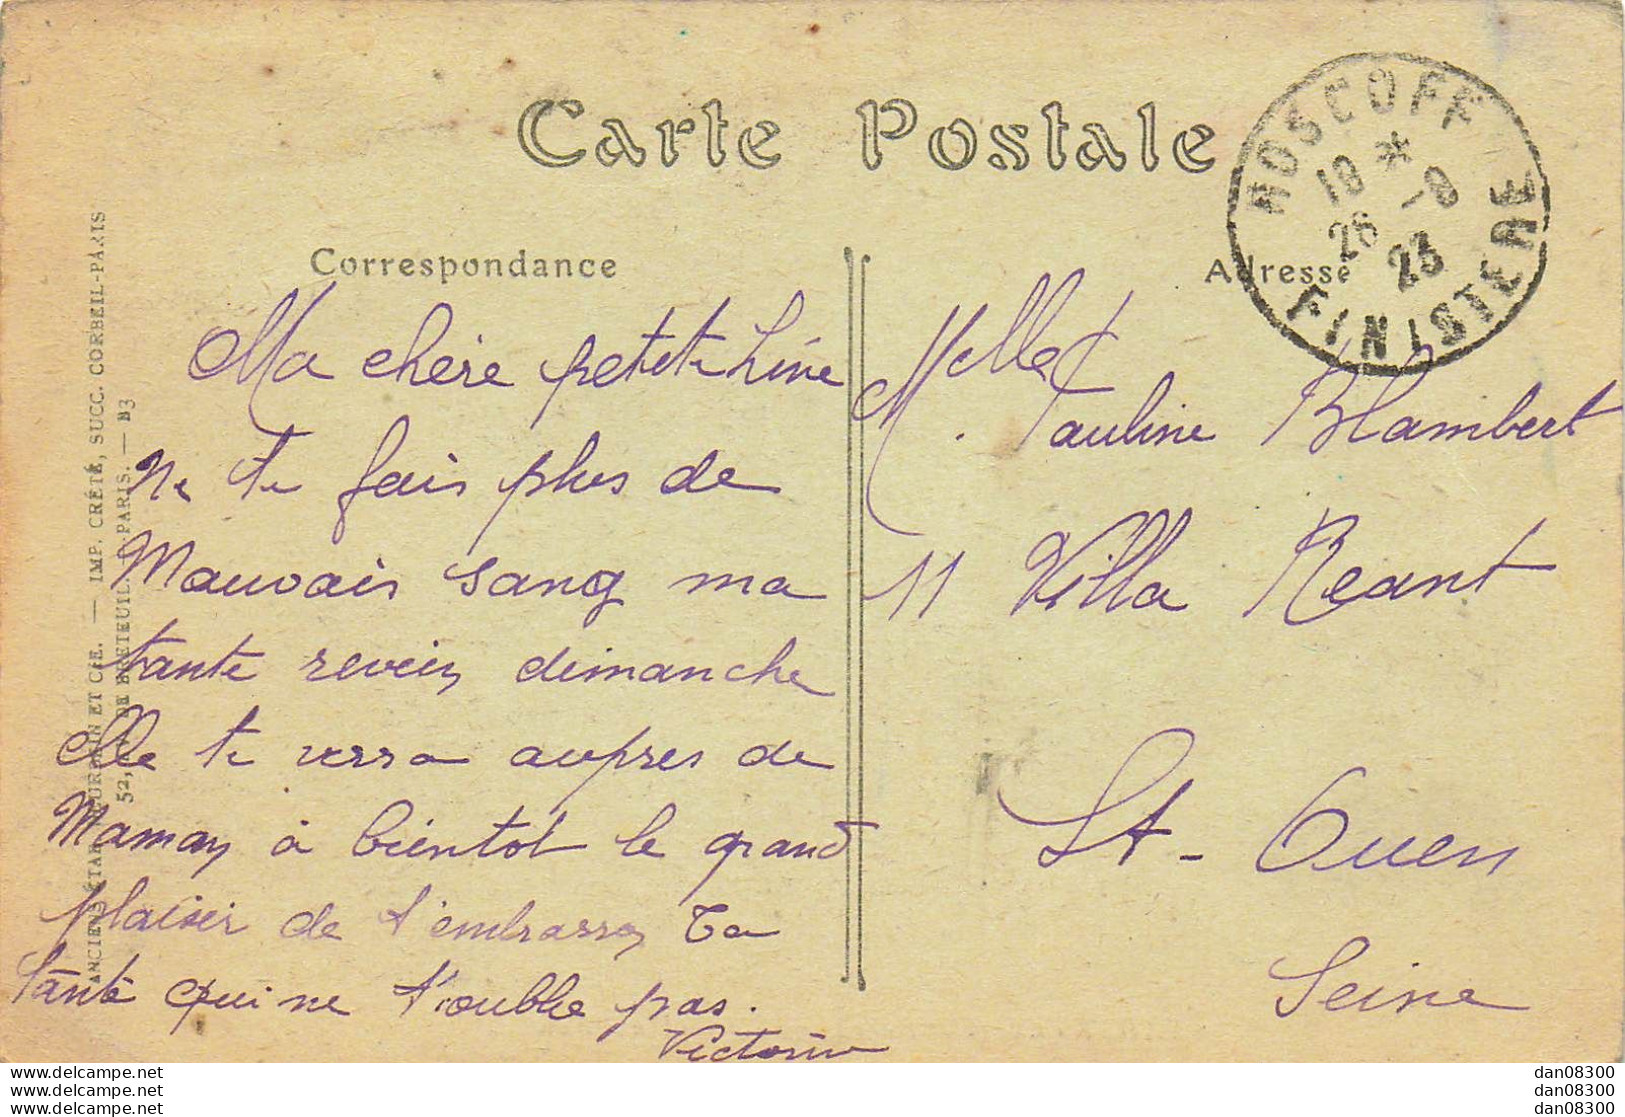 Carte Postale
ROSCOFF
18 * -8
26 23
FINISTERE
Correspondance
Adresse
Ma chère petite Line
ne te fais plus de
Mauvais sang ma
tante revein dimanche
elle te verra aupres de
Maman à bientot le grand
plaisir de t'embrasser Ta
Tante qui ne t'oublie pas.
Victorine
Melle Pauline Blambert
11 Villa Reant
St-Ouen
Seine
ANCIENS ÉTAB. NEURDEIN ET CIE. — IMP. CRÉTÉ, SUCC. CORBEIL-PARIS
52, AV. DE BRETEUIL. — PARIS. — B3
www.delcampe.net
www.delcampe.net
www.delcampe.net
dan08300
dan08300
dan08300